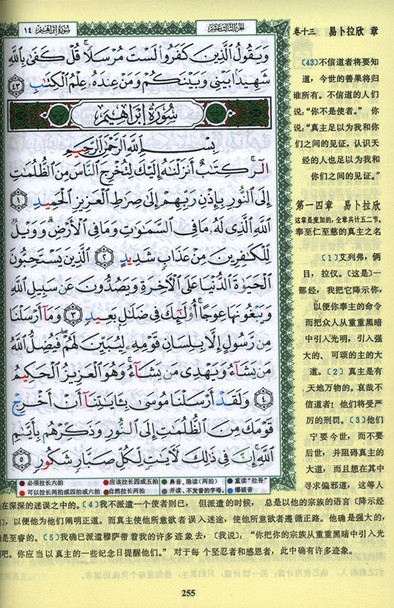 سُورَةُ إِبْرَاهِيمَ ١٤
وَيَقُولُ الَّذِينَ كَفَرُوا لَسْتَ مُرْسَلًا ۚ قُلْ كَفَىٰ بِاللَّهِ
شَهِيدًا بَيْنِي وَبَيْنَكُمْ وَمَنْ عِندَهُ عِلْمُ الْكِتَابِ ٤٣
سُورَةُ إِبْرَاهِيمَ
بِسْمِ اللَّهِ الرَّحْمَٰنِ الرَّحِيمِ
الٓر ۚ كِتَابٌ أَنزَلْنَاهُ إِلَيْكَ لِتُخْرِجَ النَّاسَ مِنَ الظُّلُمَاتِ
إِلَى النُّورِ بِإِذْنِ رَبِّهِمْ إِلَىٰ صِرَاطِ الْعَزِيزِ الْحَمِيدِ ١
اللَّهِ الَّذِي لَهُ مَا فِي السَّمَاوَاتِ وَمَا فِي الْأَرْضِ ۗ وَوَيْلٌ
لِّلْكَافِرِينَ مِنْ عَذَابٍ شَدِيدٍ ٢ الَّذِينَ يَسْتَحِبُّونَ
الْحَيَاةَ الدُّنْيَا عَلَى الْآخِرَةِ وَيَصُدُّونَ عَن سَبِيلِ اللَّهِ
وَيَبْغُونَهَا عِوَجًا ۚ أُولَٰئِكَ فِي ضَلَالٍ بَعِيدٍ ٣ وَمَا أَرْسَلْنَا
مِن رَّسُولٍ إِلَّا بِلِسَانِ قَوْمِهِ لِيُبَيِّنَ لَهُمْ ۖ فَيُضِلُّ اللَّهُ
مَن يَشَاءُ وَيَهْدِي مَن يَشَاءُ ۚ وَهُوَ الْعَزِيزُ الْحَكِيمُ
٤ وَلَقَدْ أَرْسَلْنَا مُوسَىٰ بِآيَاتِنَا أَنْ أَخْرِجْ
قَوْمَكَ مِنَ الظُّلُمَاتِ إِلَى النُّورِ وَذَكِّرْهُم بِأَيَّامِ
اللَّهِ ۚ إِنَّ فِي ذَٰلِكَ لَآيَاتٍ لِّكُلِّ صَبَّارٍ شَكُورٍ ٥
● 必须拉长六拍 ● 应该拉长四或五拍 ● 鼻音、隐读(两拍)
● 可以拉长两拍或四拍或六拍 ● 自然拉长两拍 ● 并读、不发音的字母。 ● 爆破音
卷十三 易卜拉欣 章
(43)不信道者将要知
道,今世的善果将归
谁所有。不信道的人们
说:“你不是使者。” 你
说:“真主足以为我和你
们之间的见证,认识天
经的人也足以为我和
你们之间的见证。”
第一四章 易卜拉欣
这章是麦加的,全章共计五二节。
奉至仁至慈的真主之名
(1)艾列弗,俩
目,拉仪。(这是)一
部经,我把它降示你,
以便你奉主的命令
而把众人从重重黑暗
中引入光明,引入强
大的、可颂的主的大
道。(2)真主是有
天地万物的。哀哉不
信道者!他们将受严
厉的刑罚。(3)他们
宁要今世,而不要
后世;并阻碍真主的
大道,而且想在其中
寻求偏邪道,这等人
在深深的迷误之中的。(4)我不派遣一个使者则已,但派遣的时候,总是以他的宗族的语言(降示经
),以便他为他们阐明正道。而真主使他所意欲者误入迷途,使他所意欲者遵循正路。他确是强大的,
是至睿的。(5)我确已派遣穆萨带着我的许多迹象去,(我说):“你把你的宗族从重重黑暗中引入光
吧。你应当以真主的一些纪念日提醒他们。” 对于每个坚忍者和感恩者,此中确有许多迹象。
255